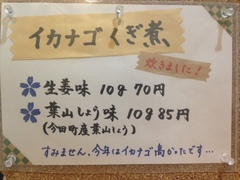 イカナゴくぎ煮
炊きました！
生姜味 10g 70円
葉山しょう味 10g 85円
(今田町産葉山しょう)
すみません、今年はイカナゴ高かったです…